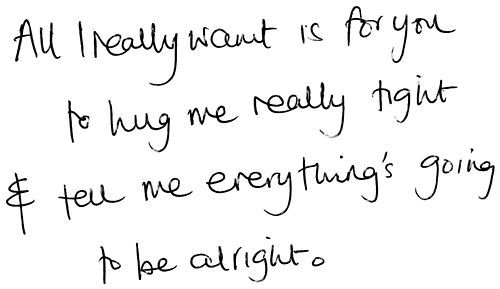 All I really want is for you
to hug me really tight
& tell me everything's going
to be alright.